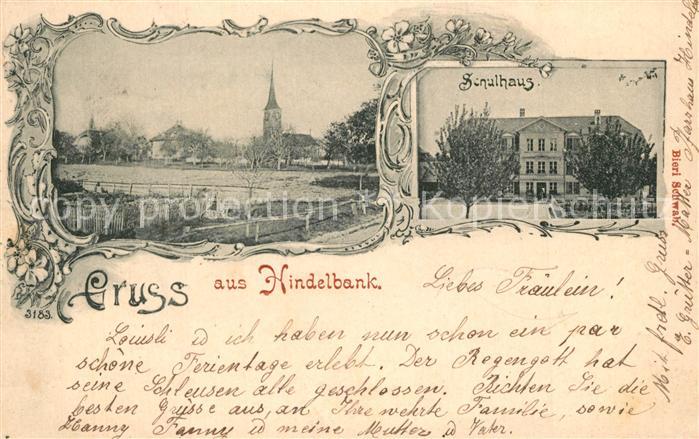 Schulhaus.
Gruss aus Hindelbank.
3183.
Bieri Schwab
Liebes Fräulein!
Louisli u ich haben nun schon ein par
schöne Ferientage erlebt. Der Regengott hat
seine Schleusen alle geschlossen. Richten Sie die
besten Grüsse aus, an Ihre wehrte Familie, sowie
Hanny Fanny u meine Mutter u Vater.
Mit frdl. Gruss
E.
Pfarrhaus Hindel
copy protection
kopierschutz